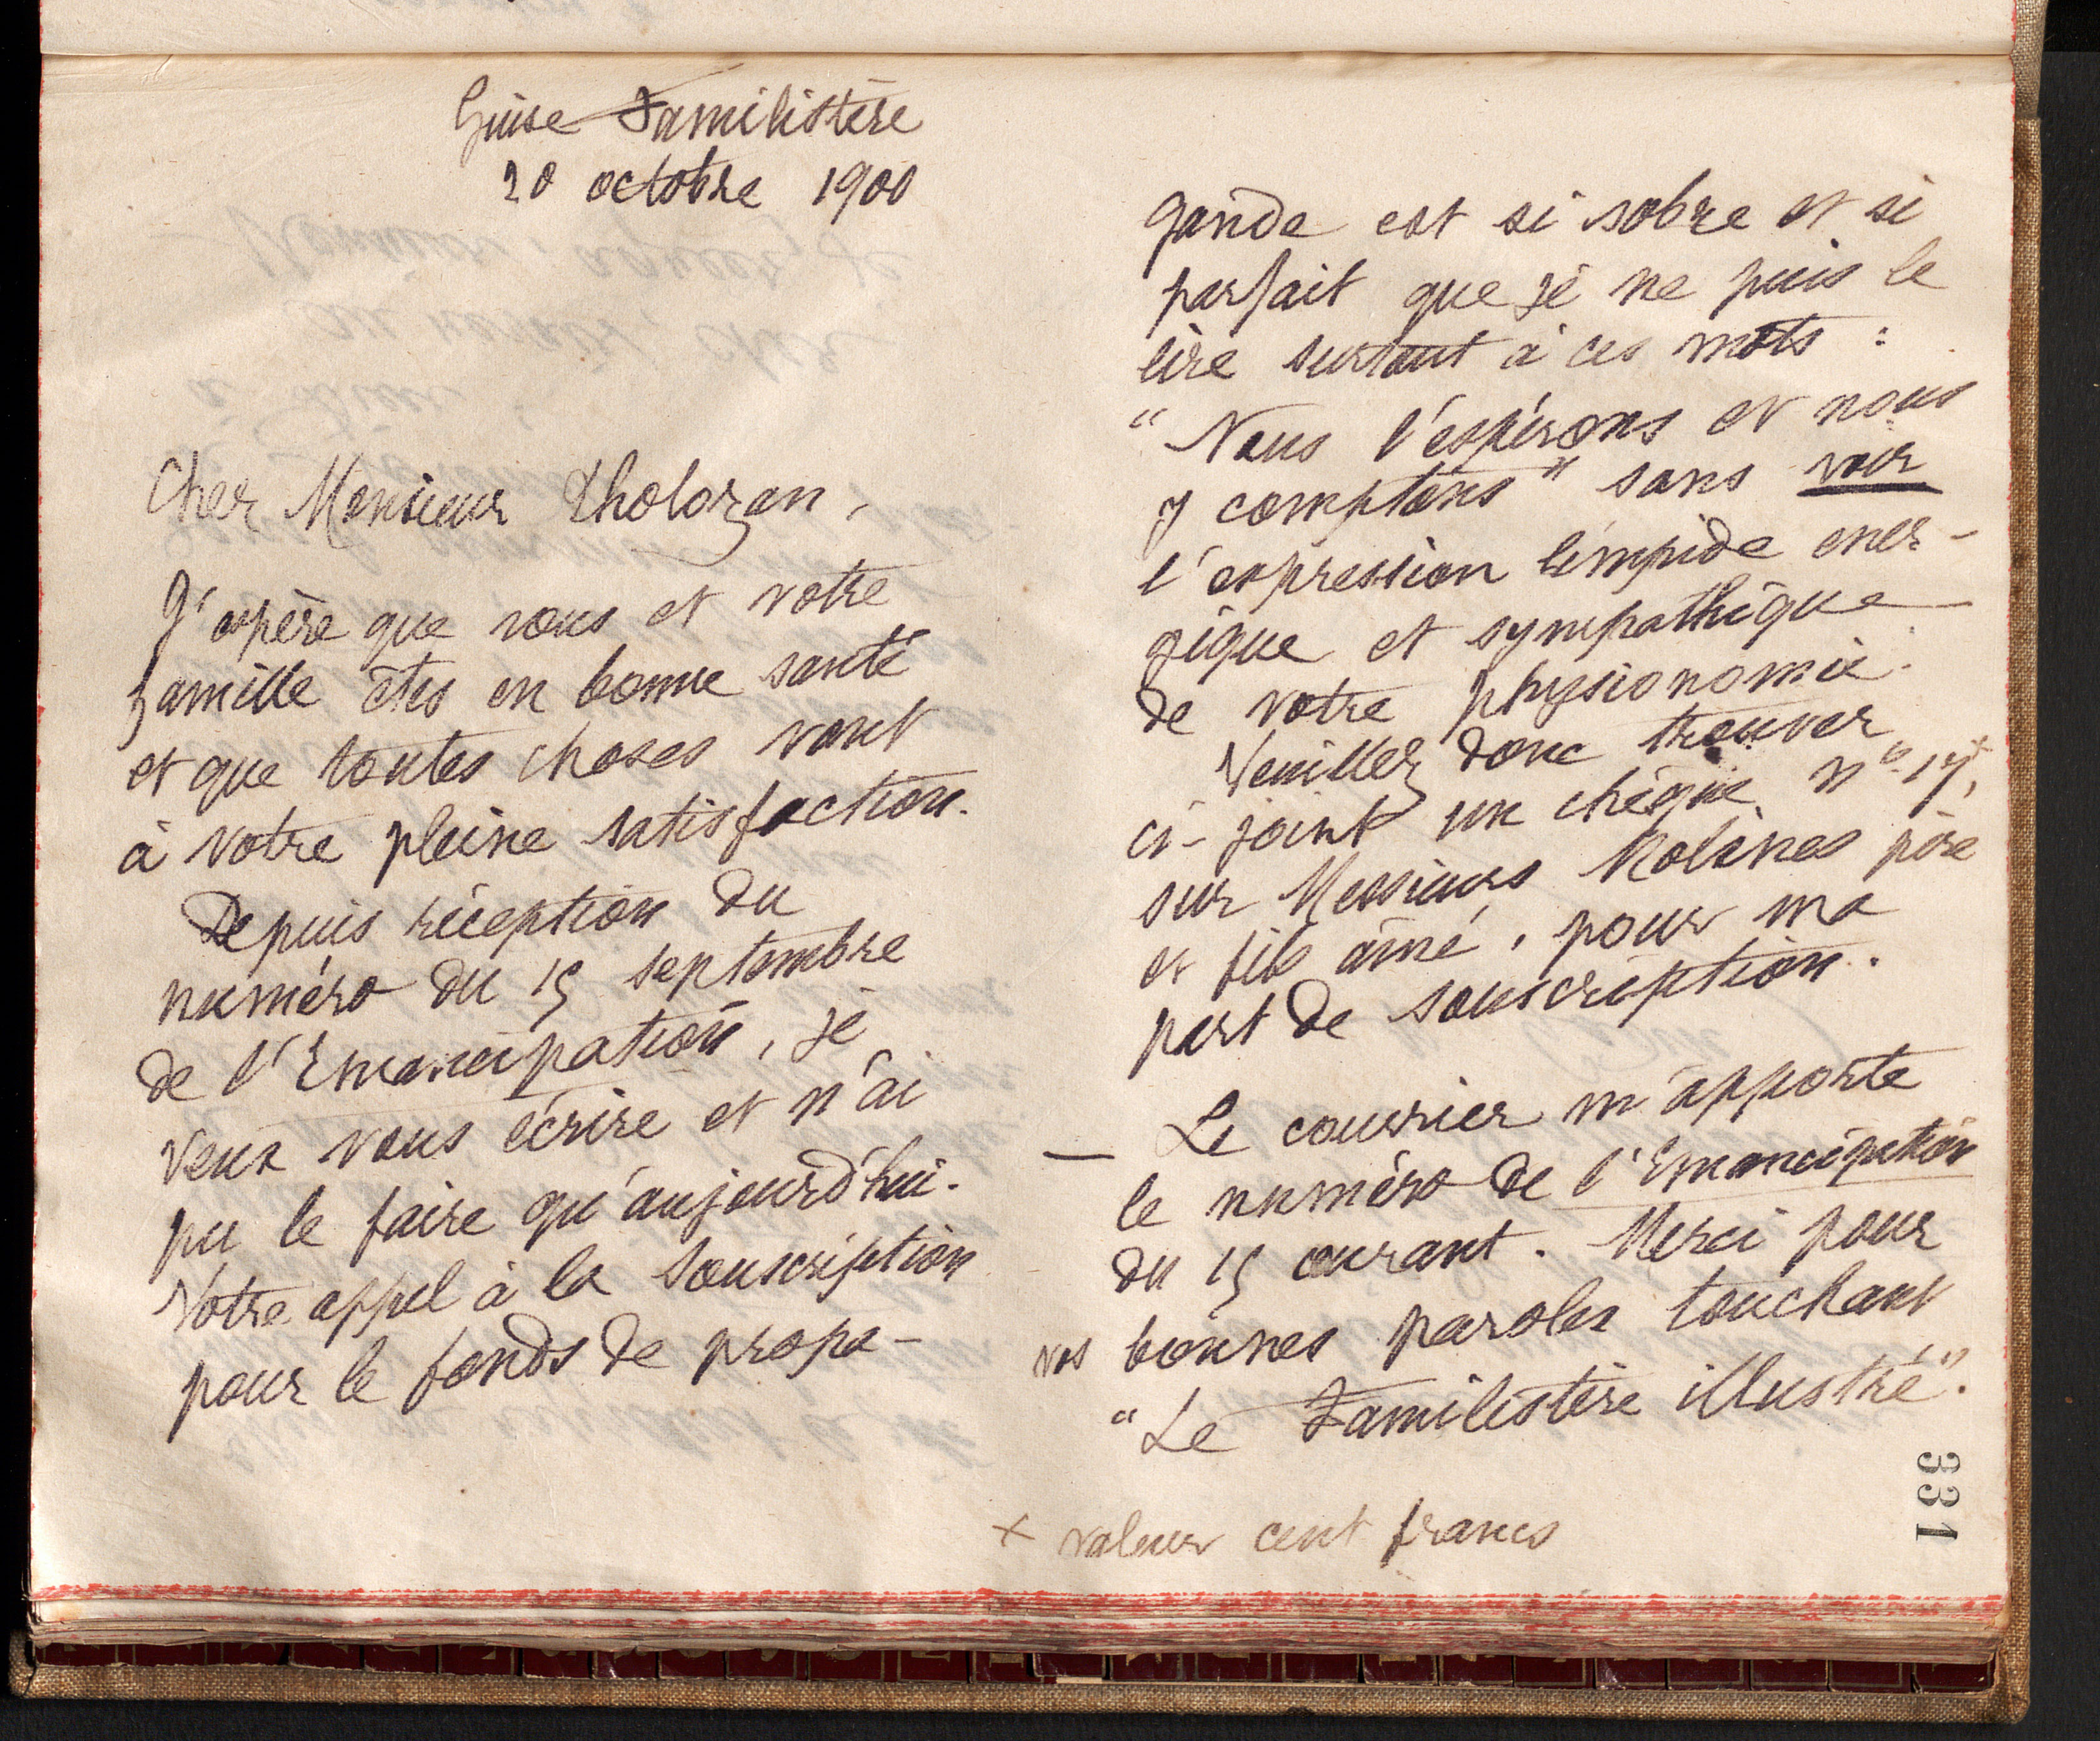 Guise Familistère
20 octobre 1900
Cher Monsieur Tholozan,
J'espère que vous et votre
famille êtes en bonne santé
et que toutes choses vont
à votre pleine satisfaction.
Depuis réception du
numéro du 15 septembre
de l'Emancipation, je
veux vous écrire et n'ai
pu le faire qu'aujourd'hui.
Votre appel à la souscription
pour le fonds de propa-
gande est si sobre et si
parfait que je ne puis le
lire surtout à ces mots :
"Nous l'espérons et nous
y comptons" sans voir
l'expression limpide éner-
gique et sympathique
de votre physionomie.
Veuillez donc trouver
ci-joint un chèque, n° 17,×
sur Messieurs Molines père
et fils aîné, pour ma
part de souscription.
— Le courrier m'apporte
le numéro de l'Emancipation
du 15 courant. Merci pour
vos bonnes paroles touchant
"Le Familistère illustré".
× valeur cent francs
331